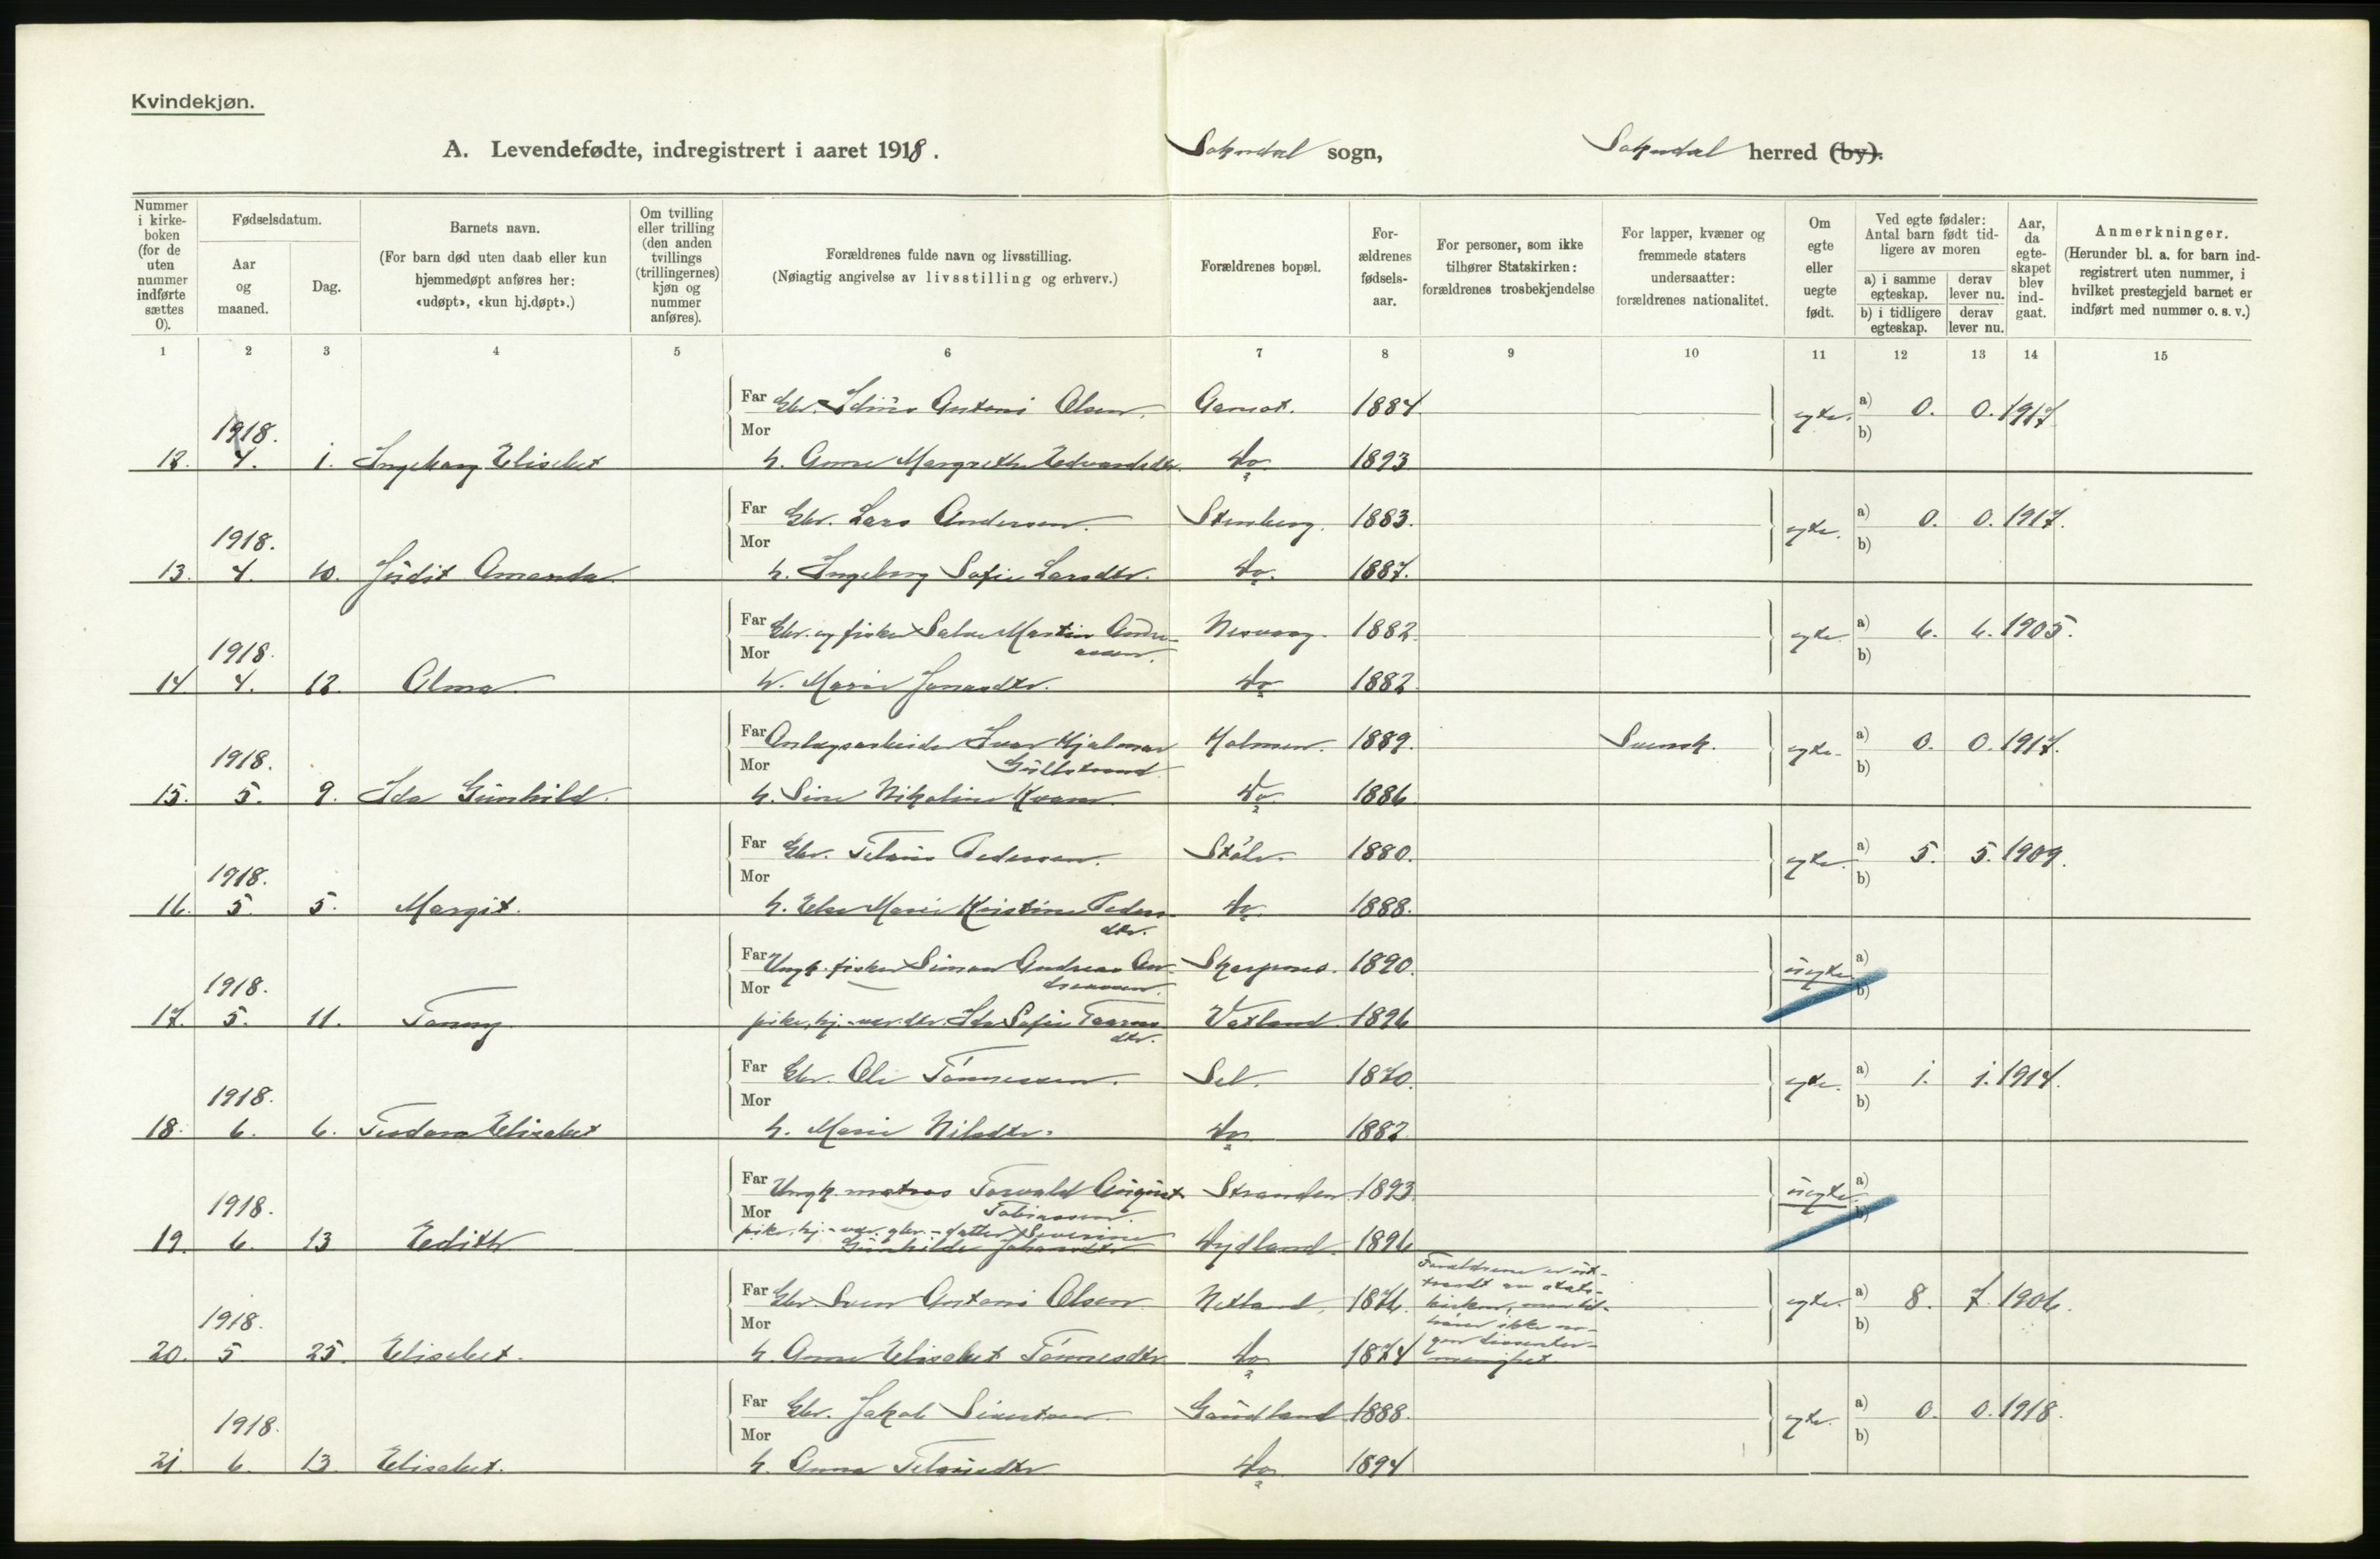 Kvindekjøn.
A. Levendefødte, indregistrert i aaret 1918. Sokndal sogn, Sokndal herred (by).
Nummer i kirkeboken (for de uten nummer indførte sættes 0).
Fødselsdatum.
Aar og maaned.
Dag.
Barnets navn.
(For barn død uten daab eller kun hjemmedøpt anføres her: «udøpt», «kun hj.døpt».)
Om tvilling eller trilling (den anden tvillings (trillingernes) kjøn og nummer anføres).
Forældrenes fulde navn og livsstilling.
(Nøiagtig angivelse av livsstilling og erhverv.)
Forældrenes bopæl.
Forældrenes fødselsaar.
For personer, som ikke tilhører Statskirken: forældrenes trosbekjendelse
For lapper, kvæner og fremmede staters undersaatter: forældrenes nationalitet.
Om egte eller uegte født.
Ved egte fødsler: Antal barn født tidligere av moren
a) i samme egteskap.
derav lever nu.
b) i tidligere egteskap.
derav lever nu.
Aar, da egteskapet blev indgaat.
Anmerkninger.
(Herunder bl. a. for barn indregistrert uten nummer, i hvilket prestegjeld barnet er indført med nummer o. s. v.)
1 2 3 4 5 6 7 8 9 10 11 12 13 14 15
Far Gbr. Antoni Olsen. 1884 egte. a) 0. 0. 1917
1918.
Mor b)
12. 4. 1. Ingeborg Elisebet h. Anne Margrethe Edvardsdtr. do 1893
Far Gbr. Lars Andersen. Stenberg. 1883. egte. a) 0. 0. 1917.
1918.
Mor b)
13. 4. 10. Judit Amanda. h. Ingeborg Sofie Larsdtr. do. 1887.
Far Gbr. og fisker Salve Martin Andreassen. Nesvaag. 1882. egte. a) 6. 6. 1905.
1918.
Mor b)
14 4. 12. Alma. h. Marie Jonasdtr. do 1882.
Far Anlægsarbeider Ivar Hjalmar Gullstrand Holmen. 1889. Svensk. egte. a) 0. 0. 1917.
1918.
Mor b)
15. 5. 9. Ida Gunhild. h. Sine Nikoline Kvam. do 1886
Far Gbr. Pedersen. Støle. 1880. egte. a) 5. 5. 1909.
1918.
Mor b)
16. 5. 5. Margit. h. Else Marie Kristine Pedersdtr. do 1888.
Far Ungk. fisker Simon Andreas Andreassen. Skarpnes. 1890. uegte a)
1918.
Mor b)
17. 5. 11. Tanny pike, Ida Sofie dtr. Vatland 1896
Far Gbr. Ole Tønnessen. Sel. 1870. egte. a) 1. 1. 1914.
1918.
Mor b)
18. 6. 6. Teodora Elisabet h. Marie Nilsdtr. do 1882.
Far Ungk. matros Torvald August Tobiassen. Stranden 1893 uegte a)
1918.
Mor b)
19. 6. 13 Edith pike, datter Severine Gunhilde Johansdtr Dydland. 1896
Far Gbr. Sven Antoni Olsen Netland. 1876. Forældrene er uttraadt av statskirken, men tilhører ikke nogen dissentermenighet. egte. a) 8. 7. 1906.
1918.
Mor b)
20. 5 25. Elisebet. h. Anne Elisebet Tønnesdtr do 1874
Far Gbr. Jakob Sivertsen. Gaudland 1888. egte. a) 0. 0. 1918.
1918.
Mor b)
21. 6. 13. Elisebet. h. Anna do. 1894